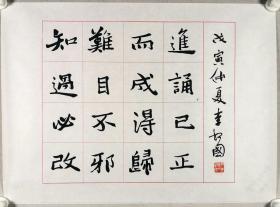 戊寅仲夏李國
進誦已正
而成得歸
難目不邪
知過必改